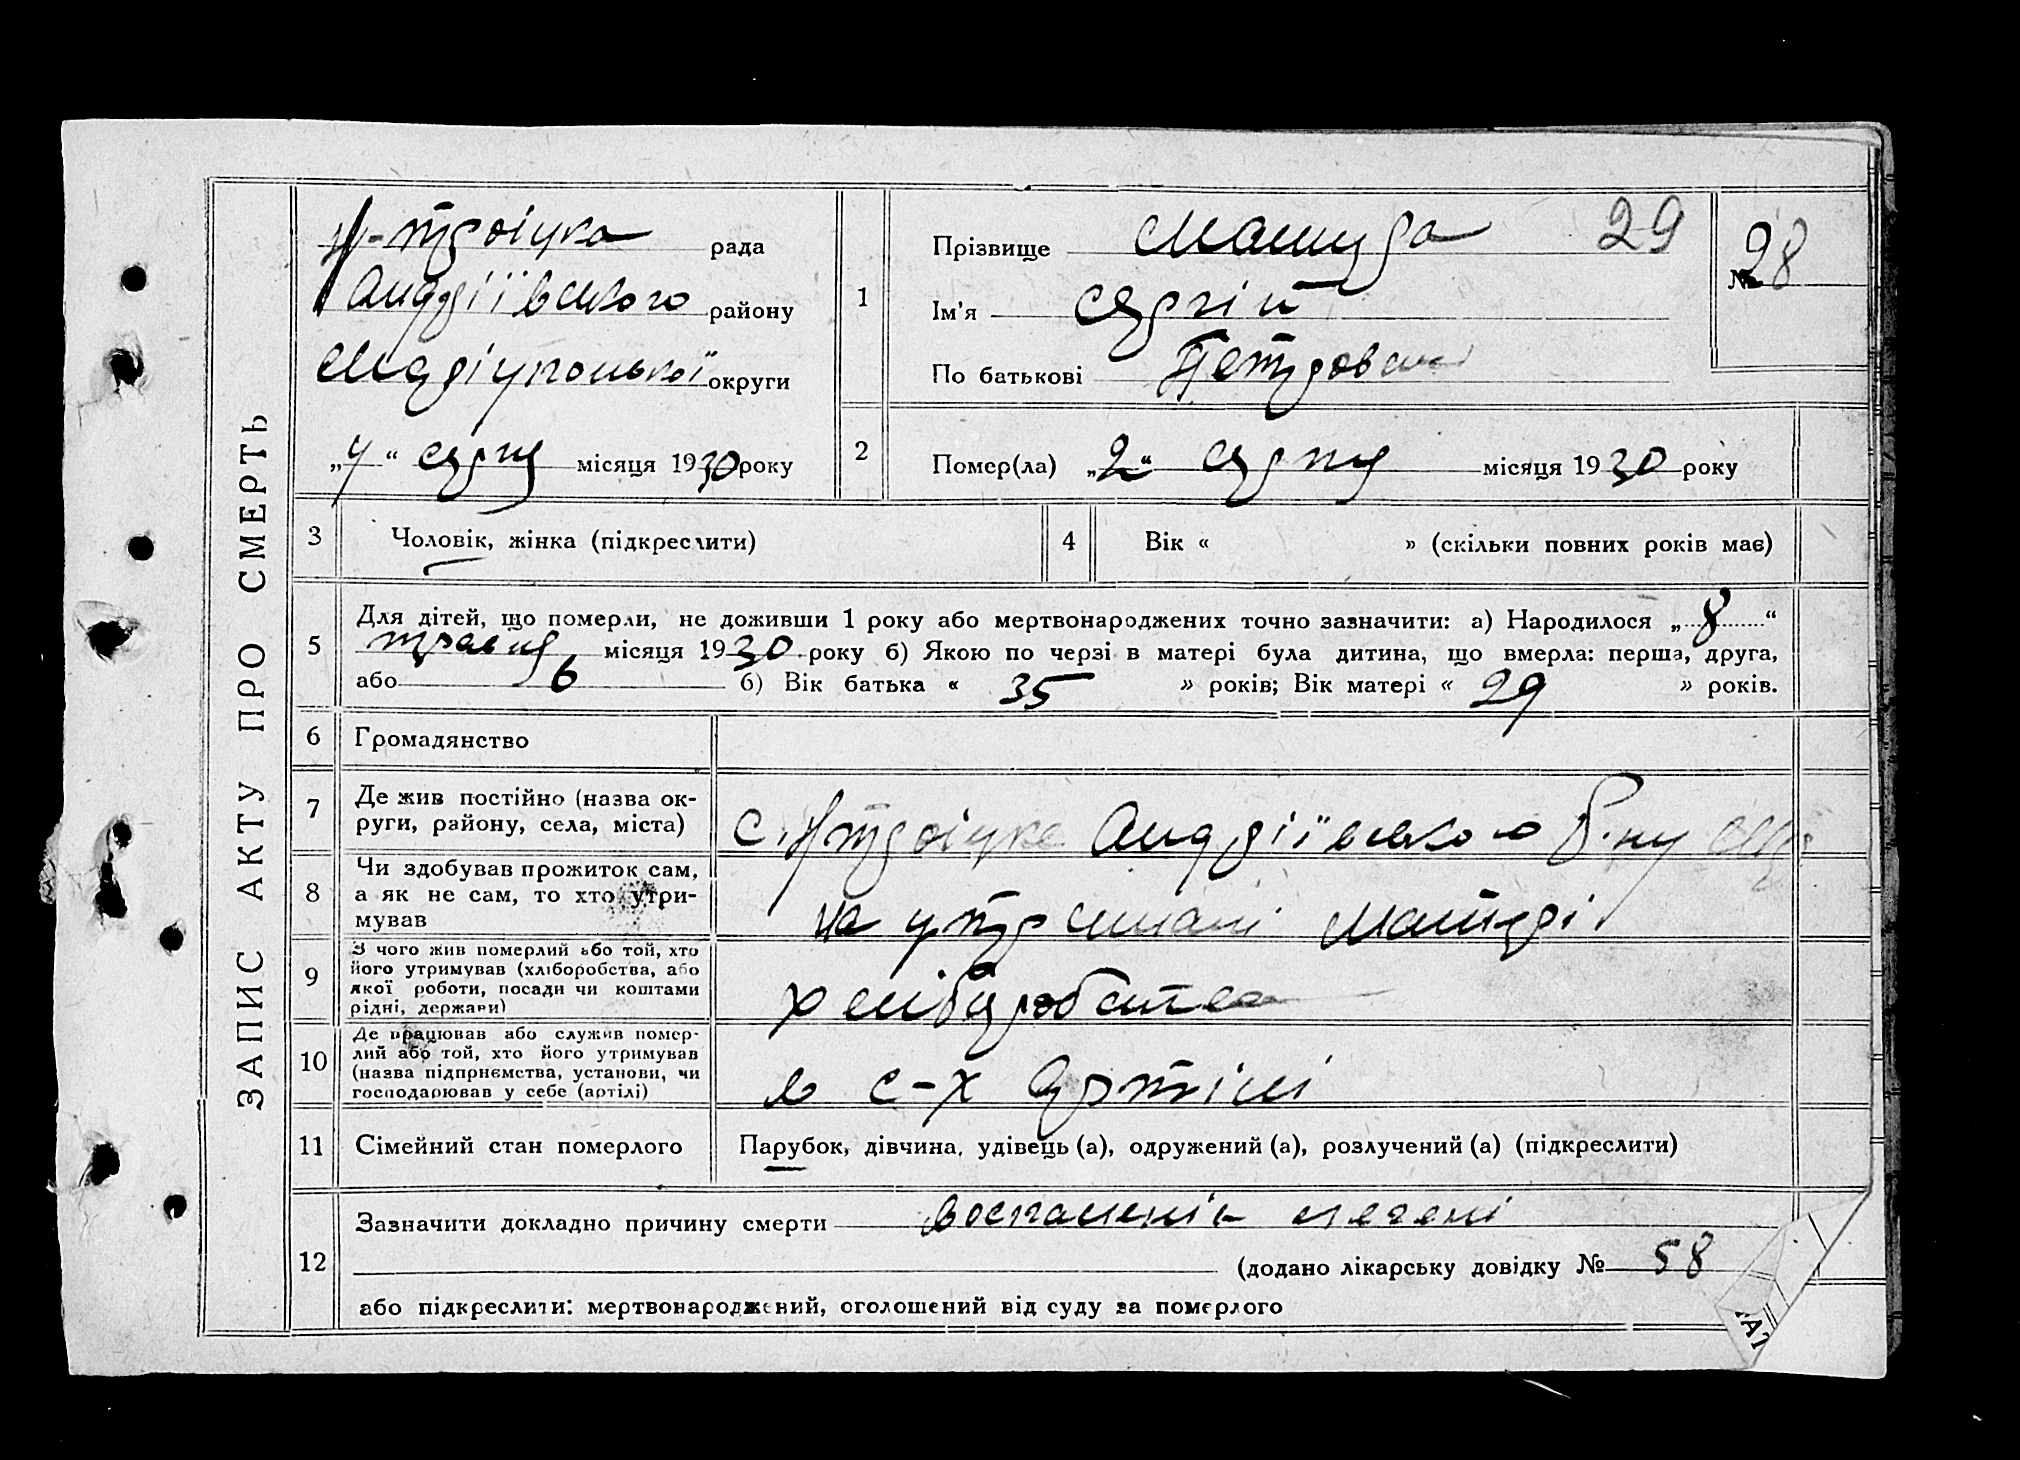 ЗАПИС АКТУ ПРО СМЕРТЬ
Н-Троіцка рада
Андріївського району
Маріупольської округи
„4“ серпня місяця 1930 року
1
Прізвище 29
Ім'я Сергій
По батькові Петрович
№ 28
2
Помер(ла) „2“ серпня місяця 1930 року
3
Чоловік, жінка (підкреслити)
4
Вік « » (скільки повних років має)
5
Для дітей, що померли, не доживши 1 року або мертвонароджених точно зазначити: а) Народилося „8“
травня місяця 1930 року б) Якою по черзі в матері була дитина, що вмерла: перша, друга,
або 6 б) Вік батька « 35 » років; Вік матері « 29 » років.
6
Громадянство
7
Де жив постійно (назва ок-
руги, району, села, міста)
с. Н Троіцке Андріївського р-ну
8
Чи здобував прожиток сам,
а як не сам, то хто утри-
мував
на утриманні матері
9
З чого жив померлий або той, хто
його утримував (хліборобства, або
якої роботи, посади чи коштами
рідні, держави)
хліборобства
10
Де працював або служив помер-
лий або той, хто його утримував
(назва підприємства, установи, чи
господарював у себе (артілі)
в с-х артілі
11
Сімейний стан померлого
Парубок, дівчина, удівець (а), одружений (а), розлучений (а) (підкреслити)
12
Зазначити докладно причину смерти воспаленія печені
(додано лікарську довідку № 58
або підкреслити: мертвонароджений, оголошений від суду за померлого